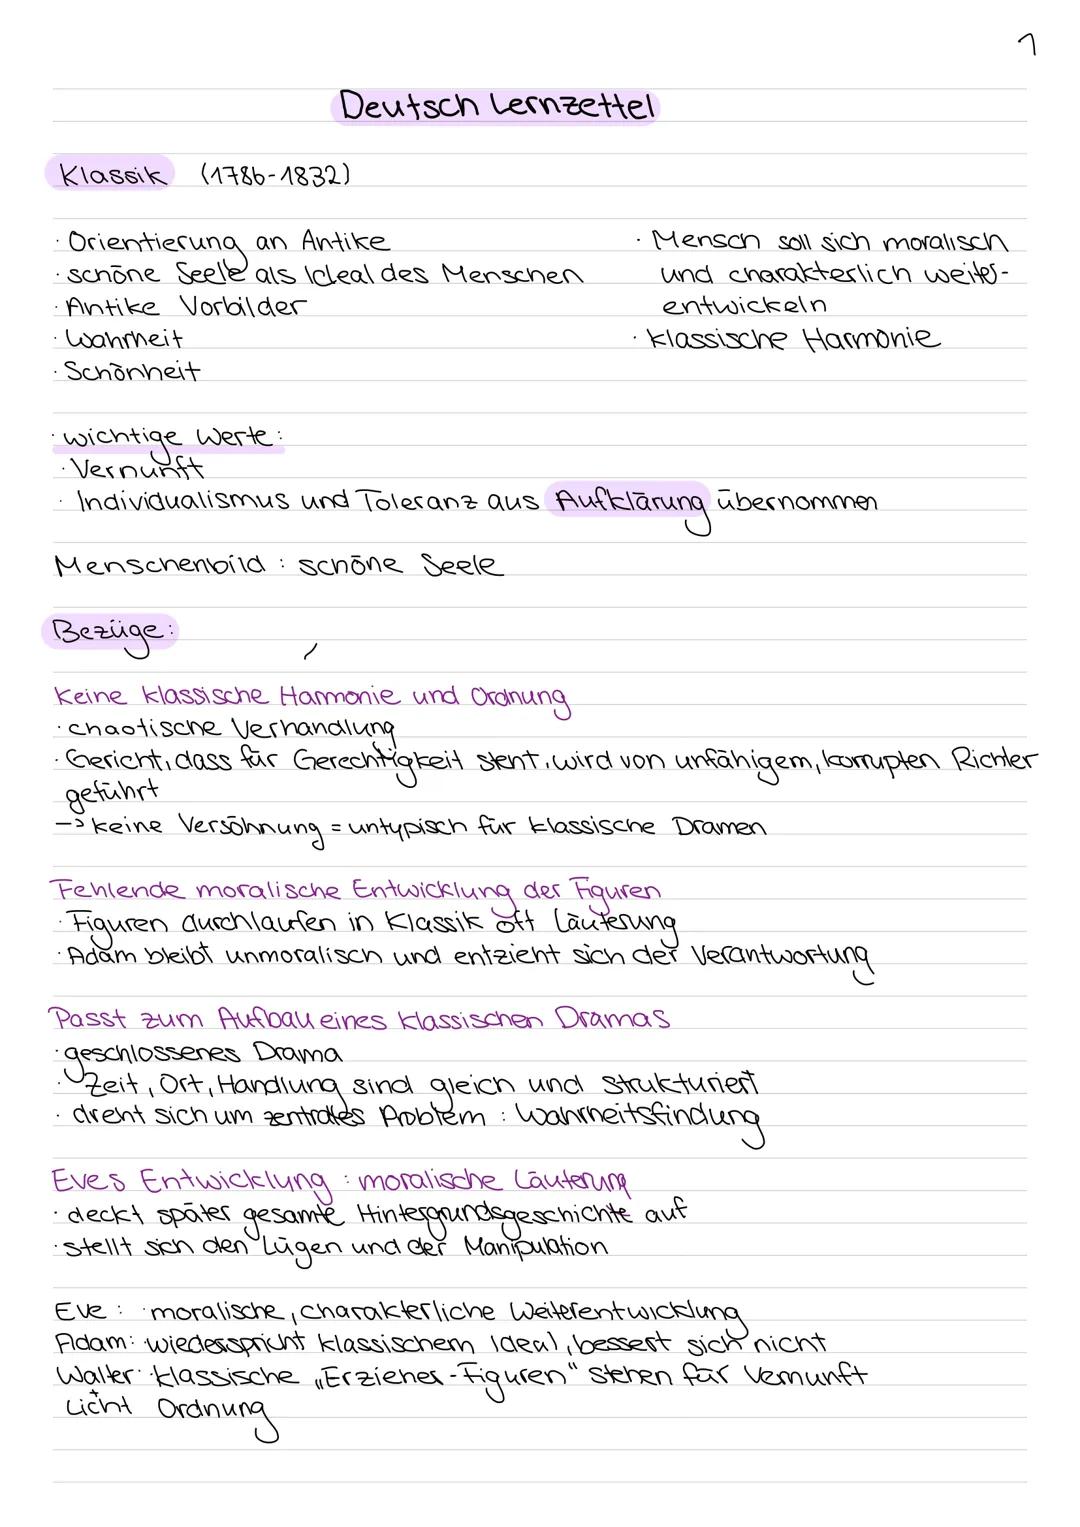 1
Deutsch Lernzettel
Klassik (1786-1832)
· Orientierung an Antike
· schöne Seele als Ideal des Menschen
· Antike Vorbilder
· Wahrheit
· Schönheit
· Mensch soll sich moralisch
und charakterlich weiter-
entwickeln
· klassische Harmonie
· wichtige Werte:
· Vernunft
· Individualismus und Toleranz aus Aufklärung übernommen
Menschenbild : schöne Seele
Bezüge:
Keine klassische Harmonie und Ordnung
· chaotische Verhandlung
· Gericht, dass für Gerechtigkeit steht, wird von unfähigem, korrupten Richter
geführt
-> keine Versöhnung = untypisch für klassische Dramen
Fehlende moralische Entwicklung der Figuren
· Figuren durchlaufen in Klassik oft Läuterung
· Adam bleibt unmoralisch und entzieht sich der Verantwortung
Passt zum Aufbau eines klassischen Dramas
· geschlossenes Drama
· Zeit, Ort, Handlung sind gleich und strukturiert
· dreht sich um zentrales Problem : Wahrheitsfindung
Eves Entwicklung : moralische Läuterung
· deckt später gesamte Hintergrundsgeschichte auf
· stellt sich den Lügen und der Manipulation
Eve : · moralische, charakterliche Weiterentwicklung
Adam: · wiederspricht klassischem Ideal, bessert sich nicht
Walter · klassische „Erzieher-Figuren" stehen für Vernunft
+
Licht Ordnung